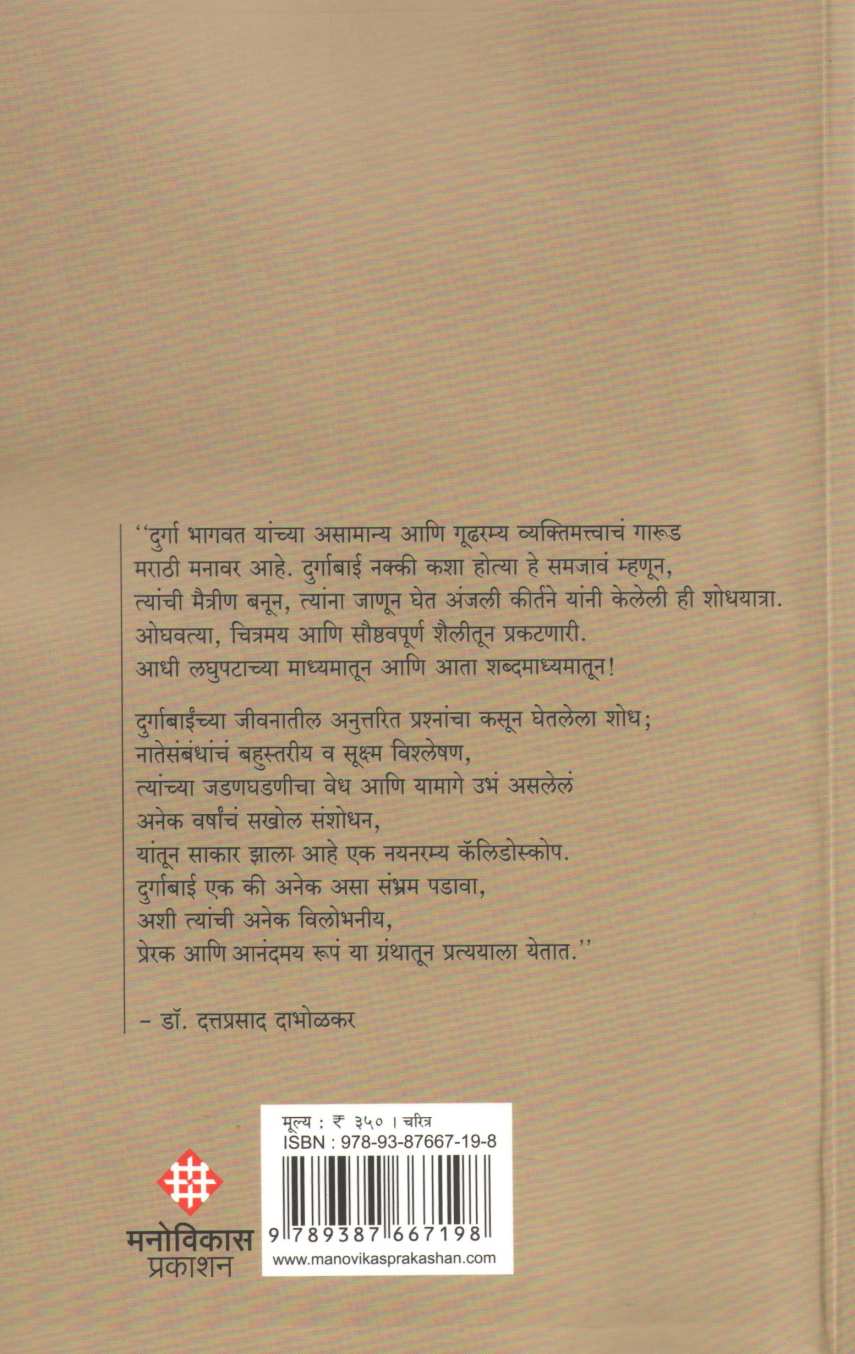 ‘‘दुर्गा भागवत यांच्या असामान्य आणि गूढरम्य व्यक्तिमत्त्वाचं गारूड
मराठी मनावर आहे. दुर्गाबाई नक्की कशा होत्या हे समजावं म्हणून,
त्यांची मैत्रीण बनून, त्यांना जाणून घेत अंजली कीर्तने यांनी केलेली ही शोधयात्रा.
ओघवत्या, चित्रमय आणि सौष्ठवपूर्ण शैलीतून प्रकटणारी.
आधी लघुपटाच्या माध्यमातून आणि आता शब्दमाध्यमातून!
दुर्गाबाईंच्या जीवनातील अनुत्तरित प्रश्नांचा कसून घेतलेला शोध;
नातेसंबंधांचं बहुस्तरीय व सूक्ष्म विश्लेषण,
त्यांच्या जडणघडणीचा वेध आणि यामागे उभं असलेलं
अनेक वर्षांचं सखोल संशोधन,
यांतून साकार झाला आहे एक नयनरम्य कॅलिडोस्कोप.
दुर्गाबाई एक की अनेक असा संभ्रम पडावा,
अशी त्यांची अनेक विलोभनीय,
प्रेरक आणि आनंदमय रूपं या ग्रंथातून प्रत्ययाला येतात.’’
– डॉ. दत्तप्रसाद दाभोळकर
मूल्य : ₹ ३५० । चरित्र
ISBN : 978-93-87667-19-8
9 789387 667198
www.manovikasprakashan.com
मनोविकास
प्रकाशन